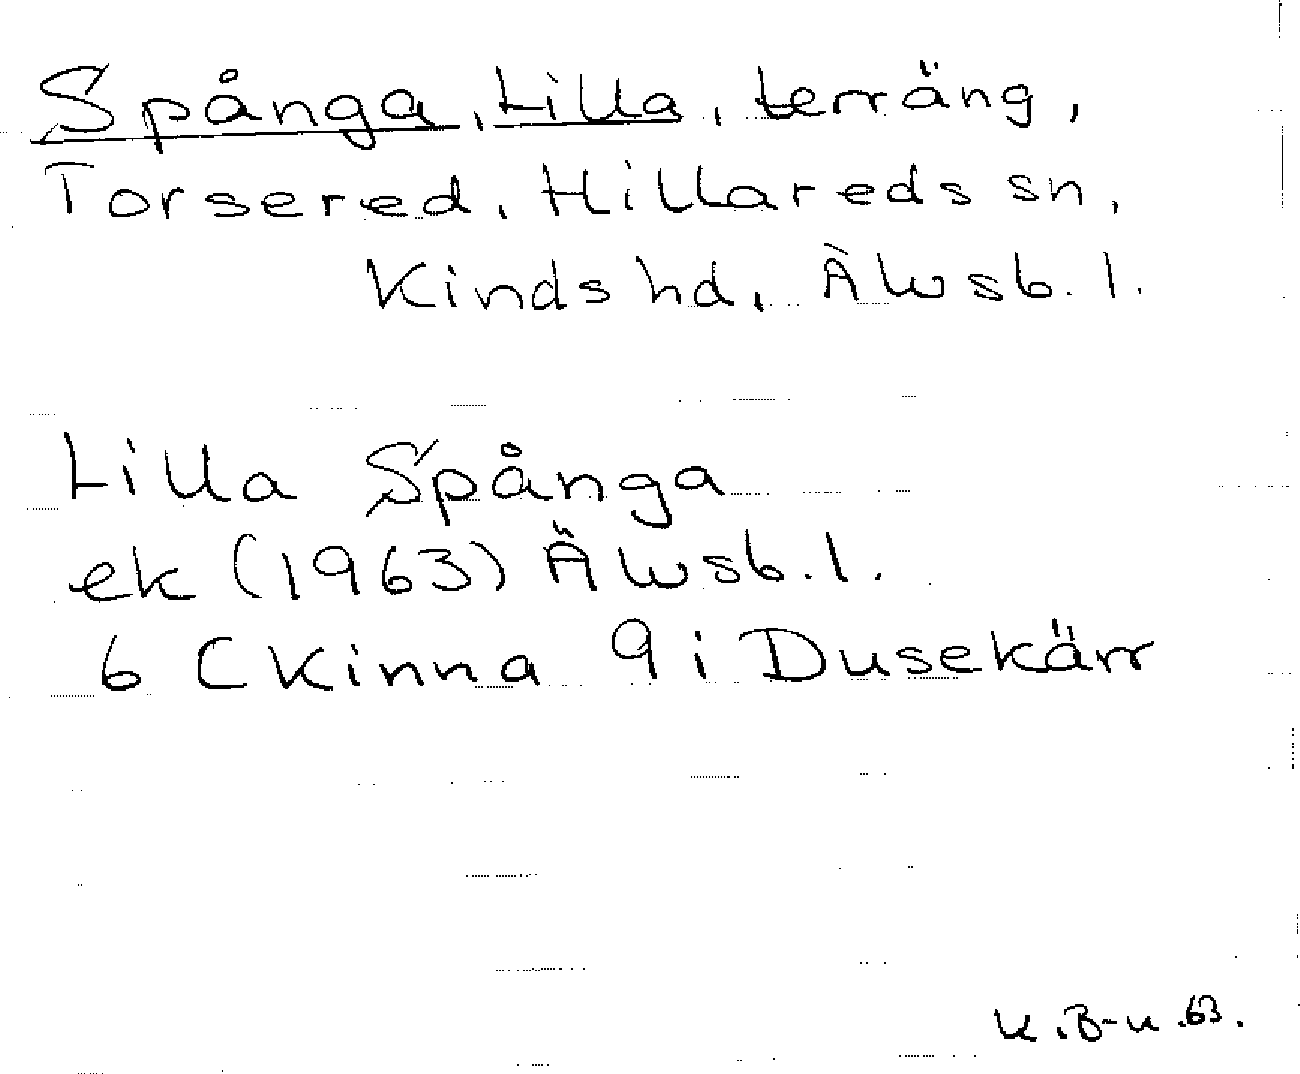 Spånga, Lilla, terräng,
Torsered, Hillareds sn,
Kinds hd, Älvsb. l.
Lilla Spånga
ek (1963) Älvsb. l.
6 C Kinna 9 i Dusekärr
K.B-K.63.